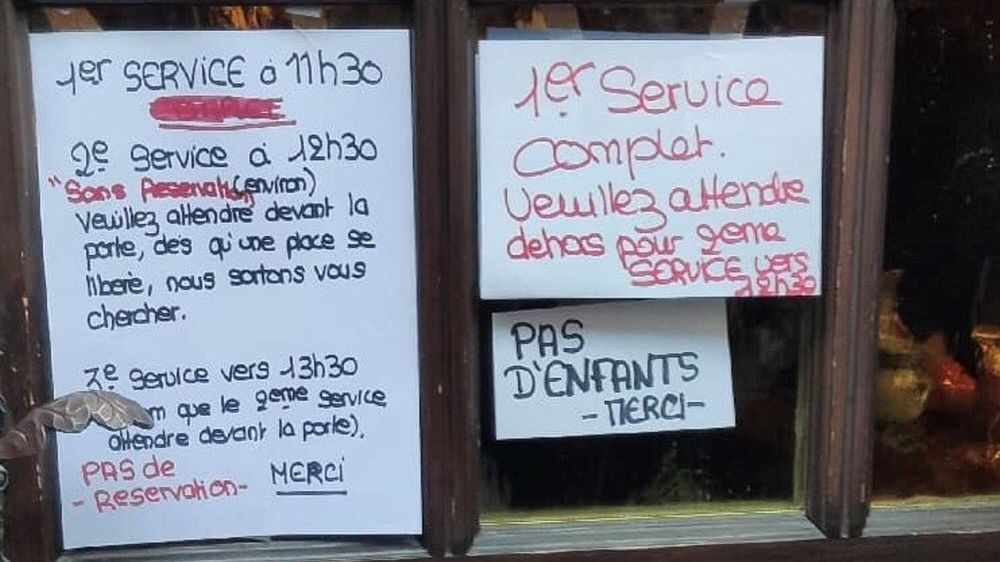 1er SERVICE à 11h30
2e Service à 12h30
"Sans Reservation (environ)
Veuillez attendre devant la
porte, dès qu'une place se
libère, nous sortons vous
chercher.
3e Service vers 13h30
m que le 2eme service
attendre devant la porte).
PAS de MERCI
- Reservation-
1er Service
complet.
Veuillez attendre
dehors pour 2eme
SERVICE vers
12h30
PAS
D'ENFANTS
-MERCI-